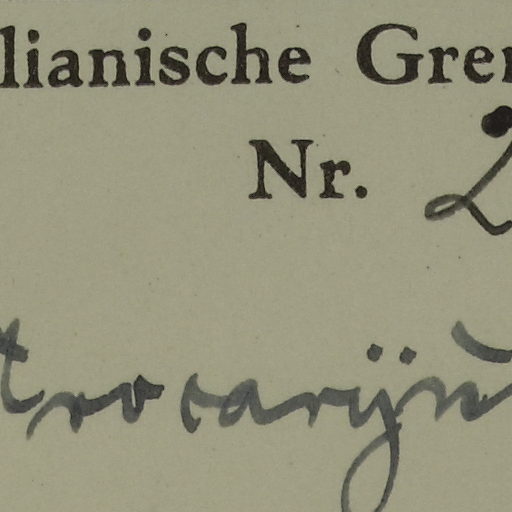 lianische Gren
Nr. 2
trocaryu